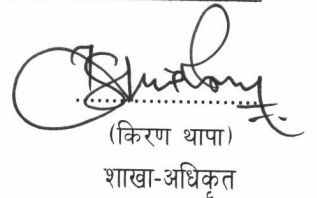 (किरण थापा)
शाखा-अधिकृत